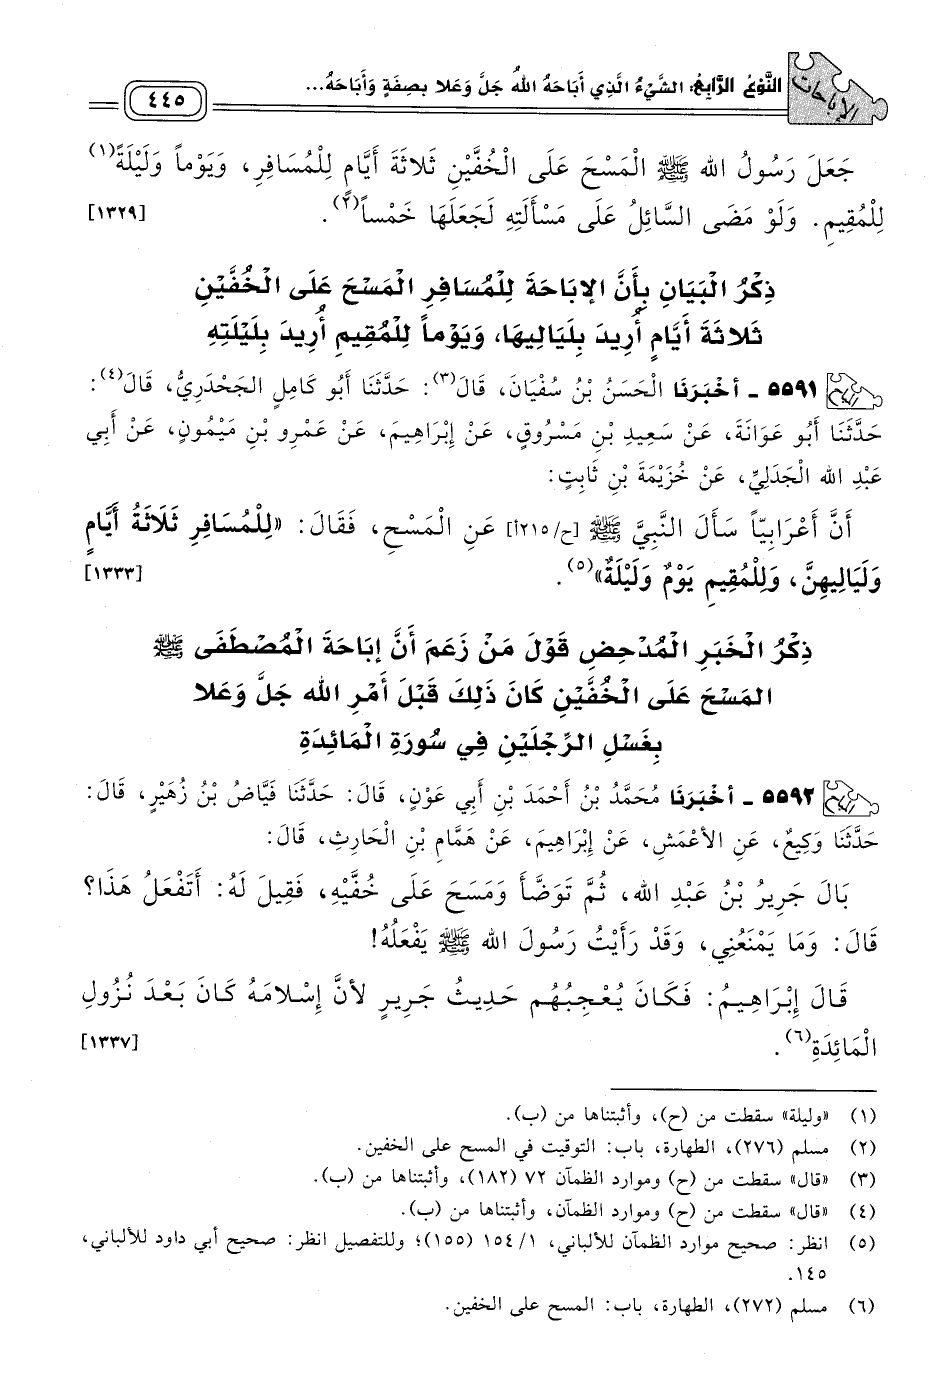 الإباحات
النَّوْعُ الرَّابِعُ: الشَّيْءُ الَّذِي أَبَاحَهُ اللهُ جَلَّ وَعَلا بِصِفَةٍ وَأَبَاحَهُ...
٤٤٥
جَعَلَ رَسُولُ الله ﷺ الْمَسْحَ عَلَى الْخُفَّيْنِ ثَلاثَةَ أَيَّامٍ لِلْمُسَافِرِ، وَيَوْماً وَلَيْلَةً(١)
لِلْمُقِيمِ. وَلَوْ مَضَى السَّائِلُ عَلَى مَسْأَلَتِهِ لَجَعَلَهَا خَمْساً(٢). [١٣٢٩]
ذِكْرُ الْبَيَانِ بِأَنَّ الإبَاحَةَ لِلْمُسَافِرِ الْمَسْحَ عَلَى الْخُفَّيْنِ
ثَلاثَةَ أَيَّامٍ أُرِيدَ بِلَيَالِيهَا، وَيَوْماً لِلْمُقِيمِ أُرِيدَ بِلَيْلَتِهِ
٥٥٩١ - أَخْبَرَنَا الْحَسَنُ بْنُ سُفْيَانَ، قَالَ(٣): حَدَّثَنَا أَبُو كَامِلٍ الْجَحْدَرِيُّ، قَالَ(٤):
حَدَّثَنَا أَبُو عَوَانَةَ، عَنْ سَعِيدِ بْنِ مَسْرُوقٍ، عَنْ إِبْرَاهِيمَ، عَنْ عَمْرِو بْنِ مَيْمُونٍ، عَنْ أَبِي
عَبْدِ الله الْجَدَلِيِّ، عَنْ خُزَيْمَةَ بْنِ ثَابِتٍ:
أَنَّ أَعْرَابِيّاً سَأَلَ النَّبِيَّ ﷺ [ح/٢١٥أ] عَنِ الْمَسْحِ، فَقَالَ: «لِلْمُسَافِرِ ثَلَاثَةُ أَيَّامٍ
وَلَيَالِيهِنَّ، وَلِلْمُقِيمِ يَوْمٌ وَلَيْلَةٌ»(٥). [١٣٣٣]
ذِكْرُ الْخَبَرِ الْمُدْحِضِ قَوْلَ مَنْ زَعَمَ أَنَّ إبَاحَةَ الْمُصْطَفَى ﷺ
الْمَسْحَ عَلَى الْخُفَّيْنِ كَانَ ذَلِكَ قَبْلَ أَمْرِ الله جَلَّ وَعَلا
بِغَسْلِ الرِّجْلَيْنِ فِي سُورَةِ الْمَائِدَةِ
٥٥٩٢ - أَخْبَرَنَا مُحَمَّدُ بْنُ أَحْمَدَ بْنِ أَبِي عَوْنٍ، قَالَ: حَدَّثَنَا فَيَّاضُ بْنُ زُهَيْرٍ، قَالَ:
حَدَّثَنَا وَكِيعٌ، عَنِ الأَعْمَشِ، عَنْ إِبْرَاهِيمَ، عَنْ هَمَّامِ بْنِ الْحَارِثِ، قَالَ:
بَالَ جَرِيرُ بْنُ عَبْدِ الله، ثُمَّ تَوَضَّأَ وَمَسَحَ عَلَى خُفَّيْهِ، فَقِيلَ لَهُ: أَتَفْعَلُ هَذَا؟
قَالَ: وَمَا يَمْنَعُنِي، وَقَدْ رَأَيْتُ رَسُولَ الله ﷺ يَفْعَلُهُ!
قَالَ إِبْرَاهِيمُ: فَكَانَ يُعْجِبُهُمْ حَدِيثُ جَرِيرٍ لأَنَّ إِسْلامَهُ كَانَ بَعْدَ نُزُولِ
الْمَائِدَةِ(٦). [١٣٣٧]
(١) «وليلة» سقطت من (ح)، وأثبتناها من (ب).
(٢) مسلم (٢٧٦)، الطهارة، باب: التوقيت في المسح على الخفين.
(٣) «قال» سقطت من (ح) وموارد الظمآن ٧٢ (١٨٢)، وأثبتناها من (ب).
(٤) «قال» سقطت من (ح) وموارد الظمآن، وأثبتناها من (ب).
(٥) انظر: صحيح موارد الظمآن للألباني، ١/ ١٥٤ (١٥٥)؛ وللتفصيل انظر: صحيح أبي داود للألباني،
١٤٥.
(٦) مسلم (٢٧٢)، الطهارة، باب: المسح على الخفين.